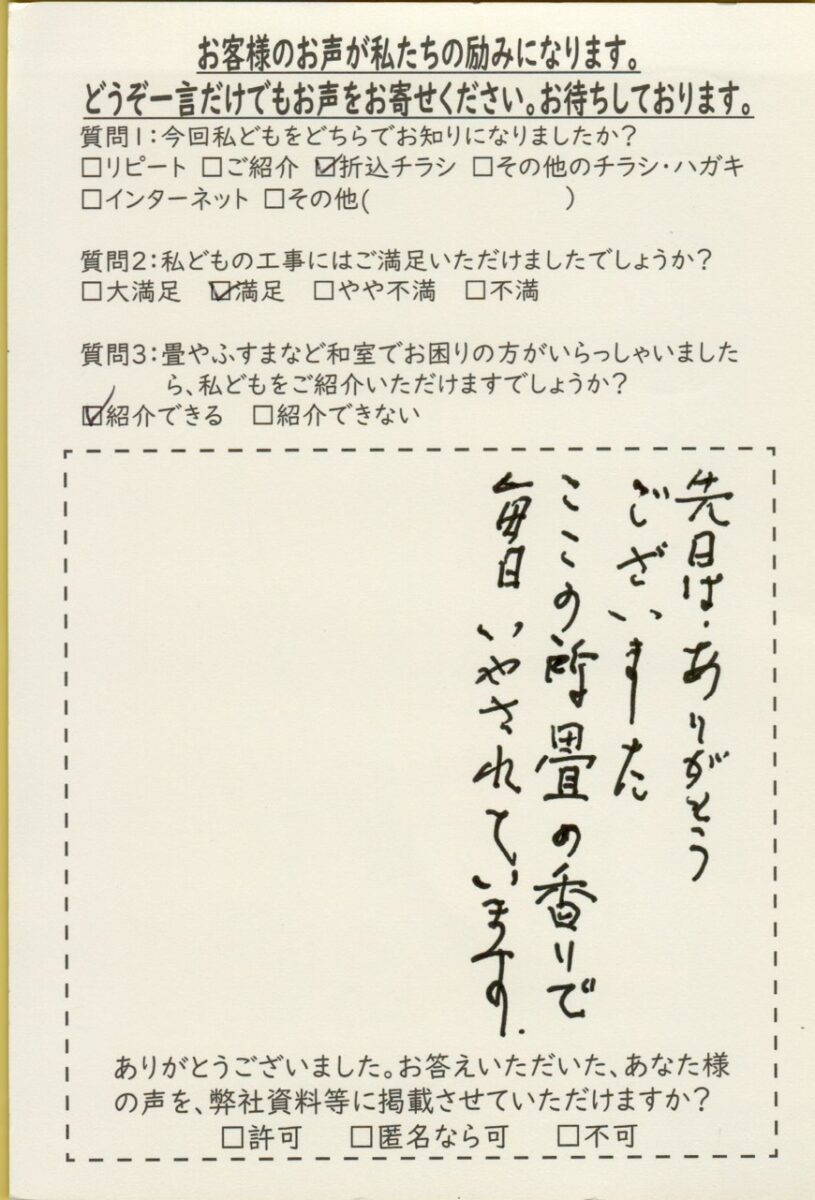 お客様のお声が私たちの励みになります。
どうぞ一言だけでもお声をお寄せください。お待ちしております。
質問1：今回私どもをどちらでお知りになりましたか？
□リピート □ご紹介 ☑折込チラシ □その他のチラシ・ハガキ
□インターネット □その他(　　　　　　　　)
質問2：私どもの工事にはご満足いただけましたでしょうか？
□大満足 ☑満足 □やや不満 □不満
質問3：畳やふすまなど和室でお困りの方がいらっしゃいました
ら、私どもをご紹介いただけますでしょうか？
☑紹介できる □紹介できない
先日は、ありがとう
ございました
ここの所畳の香りで
毎日いやされています。
ありがとうございました。お答えいただいた、あなた様
の声を、弊社資料等に掲載させていただけますか？
□許可 □匿名なら可 □不可